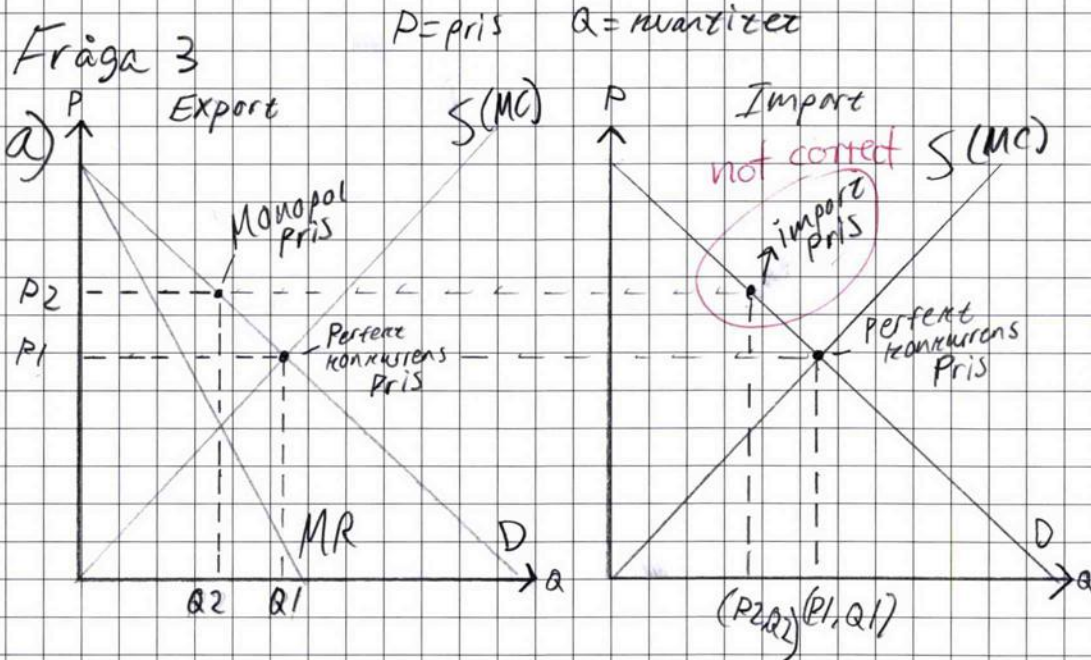 P=pris Q=kvantitet
Fråga 3
a)
P
Export
S(MC)
Monopol
pris
P2
P1
Perfekt
konkurrens
Pris
MR
D
Q
Q2
Q1
P
Import
not correct
S(MC)
import
pris
Perfekt
konkurrens
Pris
D
Q
(P2,Q2)
(P1,Q1)